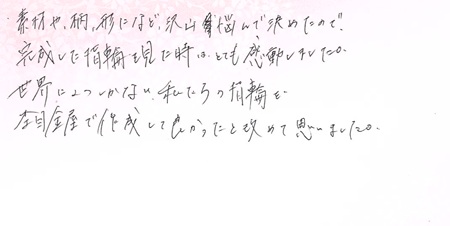 素材や、柄、形になど、沢山悩んで決めたので、
完成した指輪を見た時は、とても感動しました。
世界に2つしかない、私たちの指輪を、
杢目金屋で作成して良かったと改めて思いました。